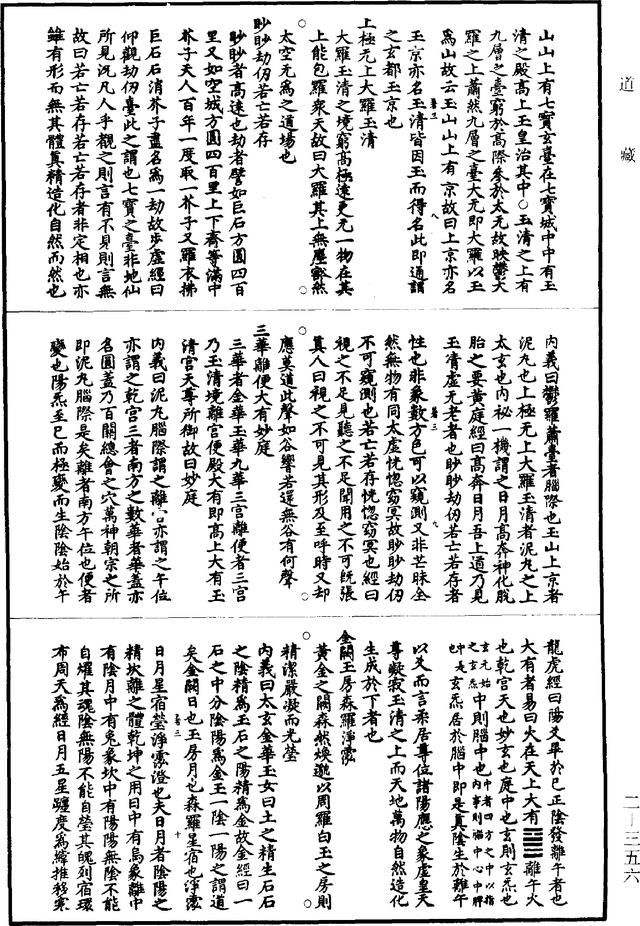 道藏
山山上有七寶玄臺在七寶城中中有玉
清之殿高上玉皇治其中○玉清之上有
九層之臺窮於高際參於太无故映鬱大
羅之上蕭然九層之臺大无即大羅以玉
為山故云玉山山上有京故曰上京亦名
玉京亦名玉清皆因玉而得名此即通謂
之玄都玉京也
上極无上大羅玉清
大羅玉清之境窮高極遠更无一物在其
上能包羅衆天故曰大羅其上無塵豁然
太空无為之道場也
眇眇劫仞若亡若存
眇眇者高遠也劫者譬如巨石方圓四百
里又如空城方圓四百里上下齊等滿中
芥子天人百年一度取一芥子又羅衣拂
巨石石消芥子盡名為一劫故步虛經曰
仰觀劫仞臺此之謂也七寶之臺非地仙
所見況凡人乎觀之則言有不見則言無
故曰若亡若存若亡若存者非定相也亦
雖有形而無其體真精造化自然而然也
內義曰鬱羅蕭臺者腦際也玉山上京者
泥丸也上極无上大羅玉清者泥丸之上
太玄也內祕一機謂之日月高奔神化脫
胎之要黃庭經曰高奔日月吾上道乃見
玉清虛无老者也眇眇劫仞若亡若存者
性也非象數方色可以窺測又非芒昧全
然無物有同太虛恍惚窈冥故眇眇劫仞
不可窺測也若亡若存恍惚窈冥也經曰
視之不足見聽之不足聞用之不可既張
真人曰視之不可見其形及至呼時又却
應莫道此聲如谷響若還無谷有何聲
三華離便大有妙庭
三華者金華玉華九華三宮離便者三宮
乃玉清境離宮便殿大有即高上大有玉
清宮天尊所御故曰妙庭
內義曰泥丸腦際謂之離宮亦謂之午位
亦謂之乾宮三者南方之數華者華蓋亦
名圓蓋乃百關總會之穴萬神朝宗之所
即泥丸腦際是矣離者南方午位也便者
變也陽炁至巳而極變而生陰陰始於午
龍虎經曰陽爻畢於巳正陰發離午者也
大有者易曰火在天上大有䷍離午火
也乾宮天也妙玄也庭中也玄則玄炁也
玄元始之玄炁中則腦中也中者四方之中以指內事則腦中心中脾中是玄炁居於腦中即是真陰生於離午
以爻而言柔居尊位諸陽應之象虛皇天
尊凝寂玉清之上而天地萬物自然造化
生成於下者也
金闕玉房森羅淨泓
黃金之闕森然煥邈以周羅白玉之房則
精潔嚴凝而光瑩
內義曰太玄金華玉女曰土之精生石石
之陰精為玉石之陽精為金故金經曰一
石之中分陰陽為金玉一陰一陽之謂道
矣金闕日也玉房月也森羅星宿也淨泓
日月星宿瑩淨澄也夫日月者陰陽之
精坎離之體乾坤之用日中有烏象離中
有陰月中有兔象坎中有陽陽無陰不能
自耀其魂陰無陽不能自瑩其魄列宿環
布周天為經日月五星躔度為緯推移寒
二—三五六